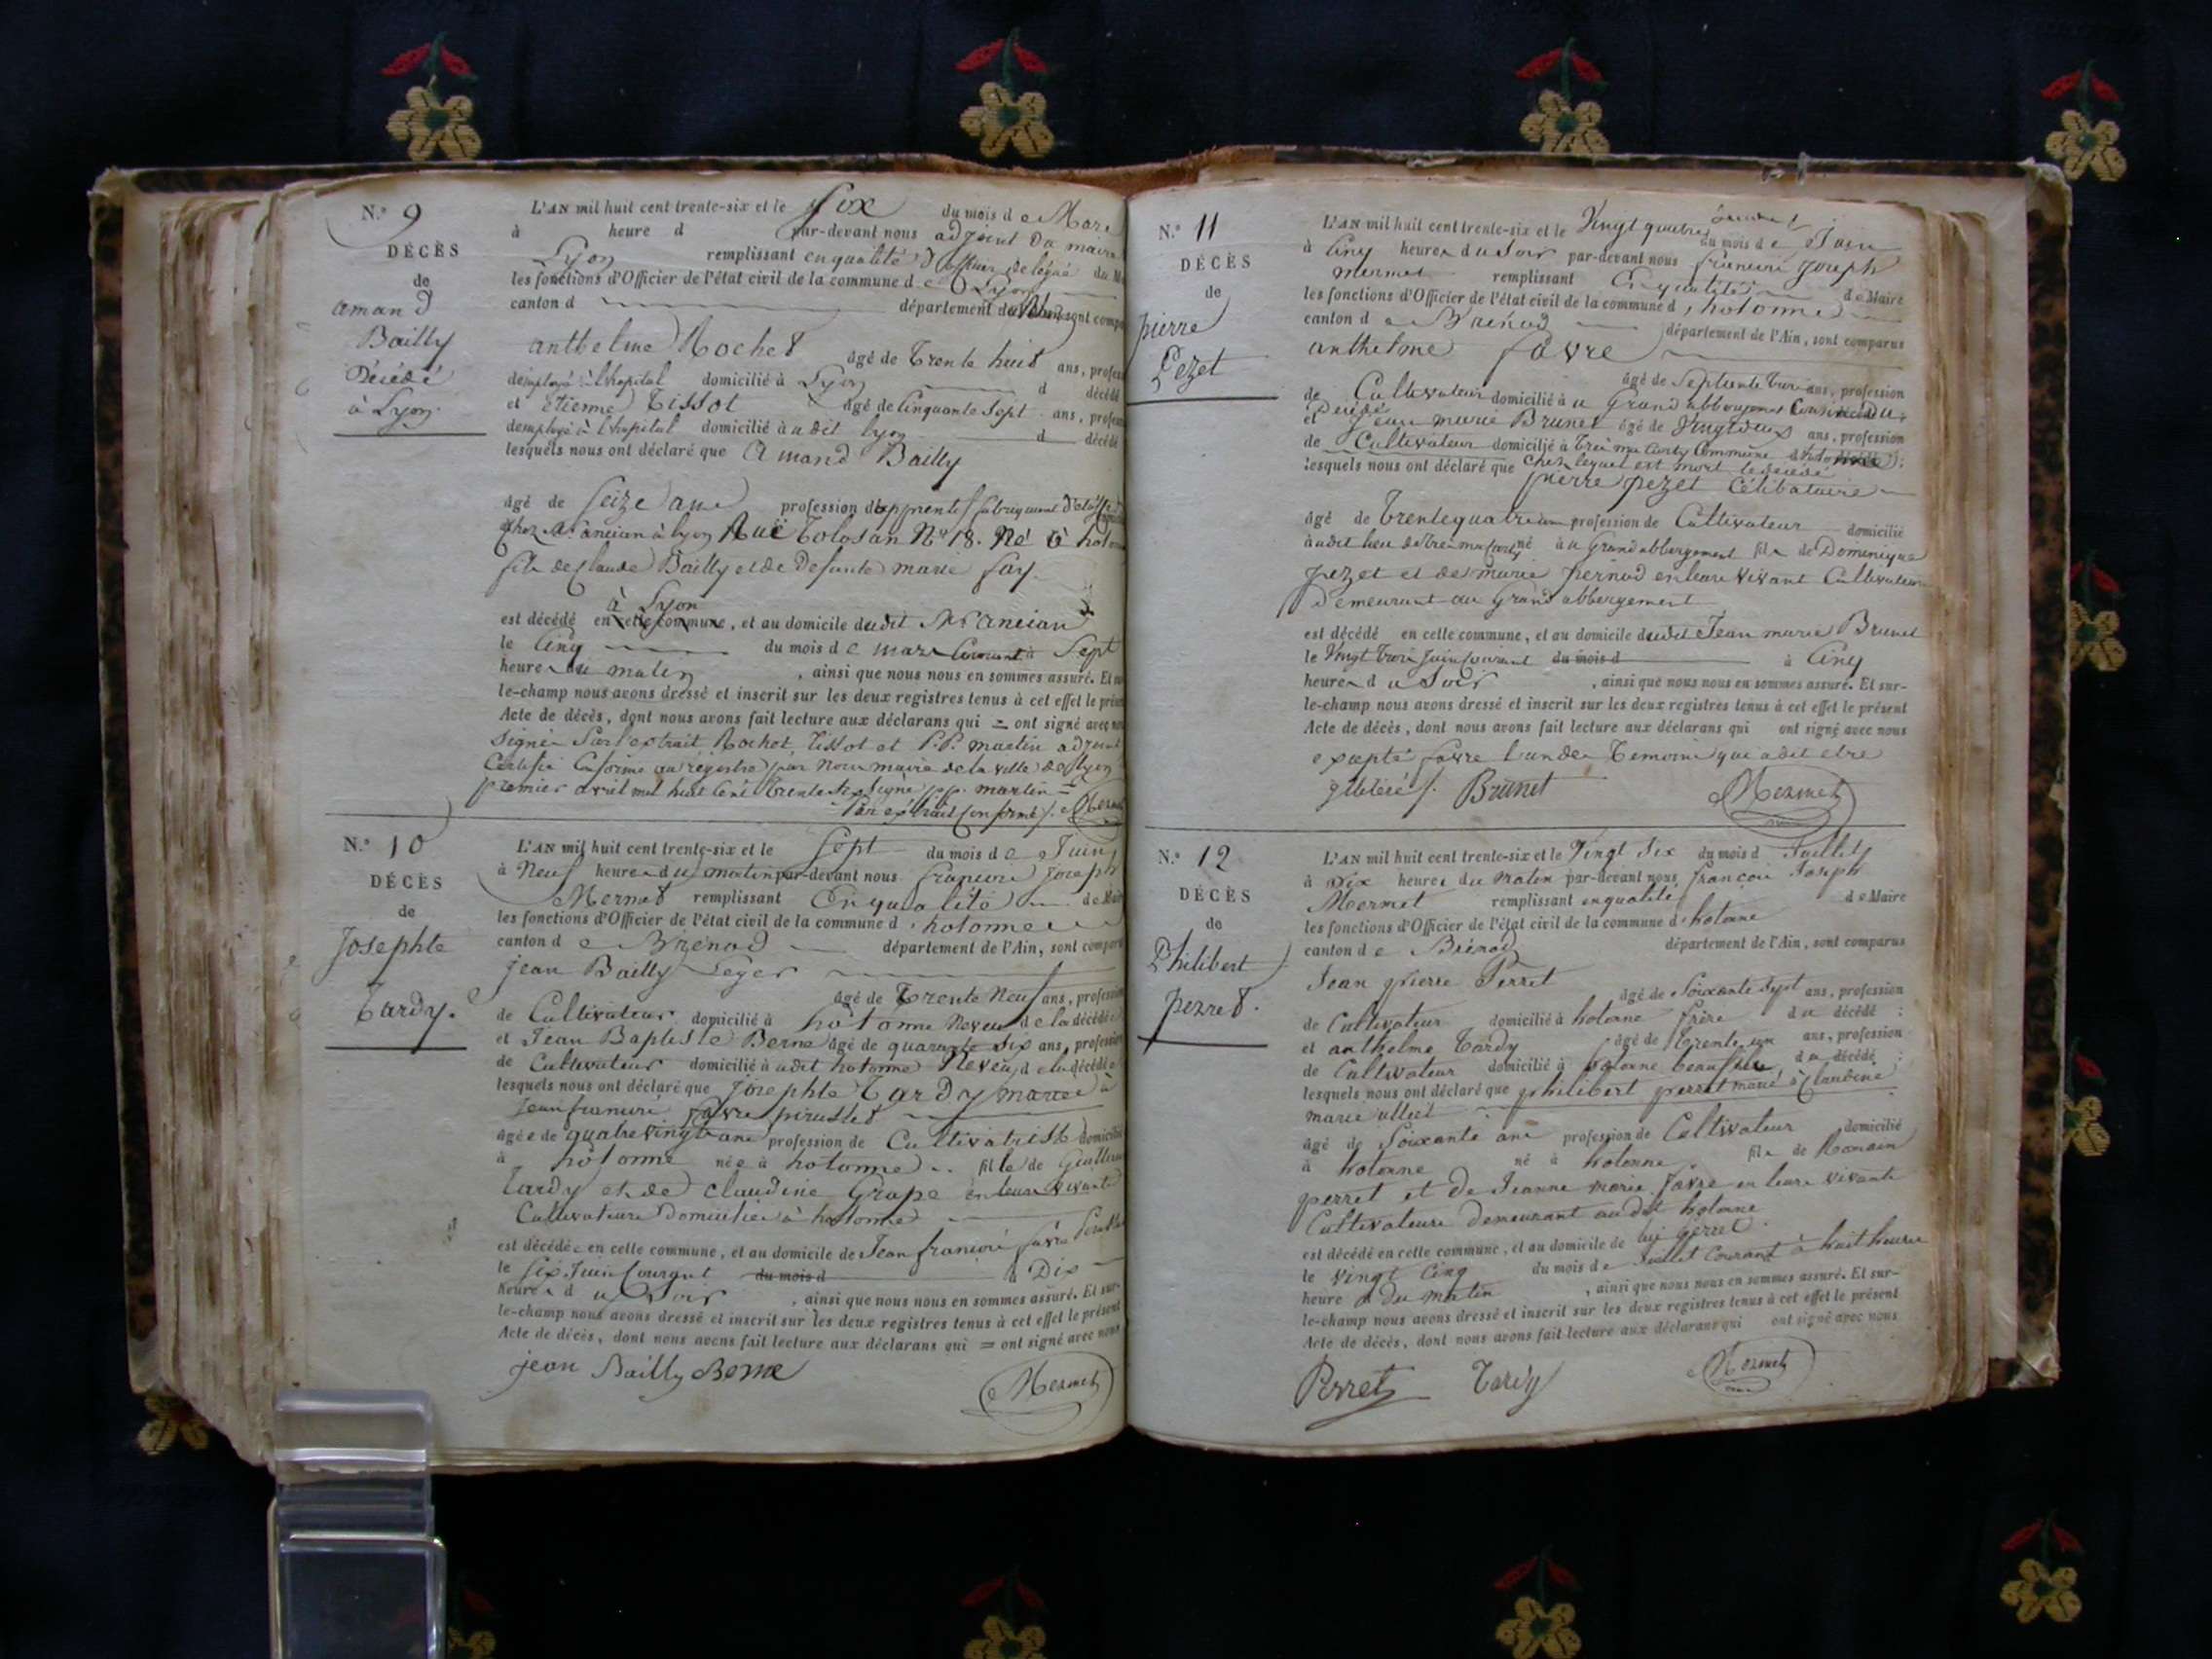 N.º 9
DÉCÈS
de
amand
Bailly
Décédé
à Lyon.
L'AN mil huit cent trente-six et le Six du mois de Mars
à heure d par-devant nous adjoint du maire
Lyon remplissant en qualité d'officier délégué du
les fonctions d'Officier de l'état civil de la commune de Lyon
canton d département du Rhône sont comp
anthelme Rochet âgé de Trente huit ans, profes
d'employé à l'hopital domicilié à Lyon d décédé
et étienne Tissot âgé de Cinquante Sept ans, profes
d'employé à l'hopital domicilié à udit lyon d décédé
lesquels nous ont déclaré que Amand Bailly
âgé de Seize ans profession d'apprentif fabriquant d'étoffe
chez Mr ancian à lyon Rue Tolosan No 18. Né à hoto
fils de Claude Bailly et de defunte marie fay
à Lyon
est décédé en cette commune, et au domicile dudit Mr ancian
le Cinq du mois de mars Courant à Sept
heures du matin, ainsi que nous nous en sommes assuré. Et
le-champ nous avons dressé et inscrit sur les deux registres tenus à cet effet le prés
Acte de décès, dont nous avons fait lecture aux déclarans qui = ont signé avec
Signé Sur l'extrait Rochet Tissot et P.P. martin adjoint
Certifié Conforme au régistre par Nous maire de la ville de Lyon
premier avril mil huit Cent Trente Six Signé pp. martin =
Par extrait Conforme /. Mermet
N.º 10
DÉCÈS
de
Josephte
Tardy.
L'AN mil huit cent trente-six et le Sept du mois de Juin
à Neuf heures du matin par-devant nous françois joseph
Mermet remplissant En qualité de Mair
les fonctions d'Officier de l'état civil de la commune d'hotonne
canton de Brénod département de l'Ain, sont comparu
jean Bailly Leger
âgé de Trente Neuf ans, profession
de Cultivateur domicilié à hotonne Neveu de la décédée
et Jean Baptiste Berne âgé de quarante Six ans, profession
de Cultivateur domicilié à udit hotonne Neveu de la décédée
lesquels nous ont déclaré que Josephte Tardy mariée à
Jean françois favre
âgée de quatrevingt ans profession de Cultivatrice domicilié
à hotonne née à hotonne fille de Guillau
Tardy et de claudine Grape en leurs vivants
Cultivateurs Domiciliés à hotonne
est décédée en cette commune, et au domicile de Jean françois favre
le Six Juin Courant du mois d à Dix
heures du Soir, ainsi que nous nous en sommes assuré. Et sur-
le-champ nous avons dressé et inscrit sur les deux registres tenus à cet effet le présent
Acte de décès, dont nous avons fait lecture aux déclarans qui = ont signé avec nous
jean Bailly Berne Mermet
N.º 11
DÉCÈS
de
pierre
Pezet
L'AN mil huit cent trente-six et le Vingt quatre du mois de Juin
à Cinq heures du Soir par-devant nous françois joseph
mermet remplissant En qualité de Maire
les fonctions d'Officier de l'état civil de la commune d'hotonne
canton de Brénod département de l'Ain, sont comparus
anthelme favre
âgé de Septante Trois ans, profession
de Cultivateur domicilié à u Grand abbergement Cousin du
Décédé
et Jean marie Brunet âgé de Vingt deux ans, profession
de Cultivateur domicilié à Commune d'hotonne
lesquels nous ont déclaré que chez lequel est mort le décédé
pierre pezet Célibataire
âgé de Trente quatre ans profession de Cultivateur domicilié
à udit lieu né à u Grand abbergement fils de Dominique
pezet et de marie pernod en leurs vivant Cultivateurs
Demeurant au Grand abbergement
est décédé en cette commune, et au domicile dudit Jean marie Brunet
le Vingt Trois Juin Courant du mois d à Cinq
heures du Soir, ainsi que nous nous en sommes assuré. Et sur-
le-champ nous avons dressé et inscrit sur les deux registres tenus à cet effet le présent
Acte de décès, dont nous avons fait lecture aux déclarans qui ont signé avec nous
excepté favre l'un des Temoins qui a dit etre
illitéré /. Brunet Mermet
N.º 12
DÉCÈS
de
Philibert
perret.
L'AN mil huit cent trente-six et le Vingt Six du mois d Juillet
à Dix heures du matin par-devant nous françois Joseph
Mermet remplissant en qualité de Maire
les fonctions d'Officier de l'état civil de la commune d'hotonne
canton de Brénod département de l'Ain, sont comparus
Jean pierre Perret
âgé de Soixante Sept ans, profession
de Cultivateur domicilié à hotonne frère du décédé :
et anthelme Tardy âgé de Trente un ans, profession
de Cultivateur domicilié à hotonne beaufils du décédé :
lesquels nous ont déclaré que philibert perret marié à Claudine
marie
âgé de Soixante ans profession de Cultivateur domicilié
à hotonne né à hotonne fils de Romain
perret et de Jeanne marie favre en leurs vivants
Cultivateurs demeurant audit hotonne
est décédé en cette commune, et au domicile de lui perret
le Vingt Cinq du mois de Juillet Courant à huit heures
heure du matin, ainsi que nous nous en sommes assuré. Et sur-
le-champ nous avons dressé et inscrit sur les deux registres tenus à cet effet le présent
Acte de décès, dont nous avons fait lecture aux déclarans qui ont signé avec nous
Perret Tardy Mermet